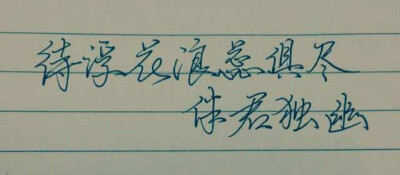 待浮花浪蕊俱尽
伴君独幽